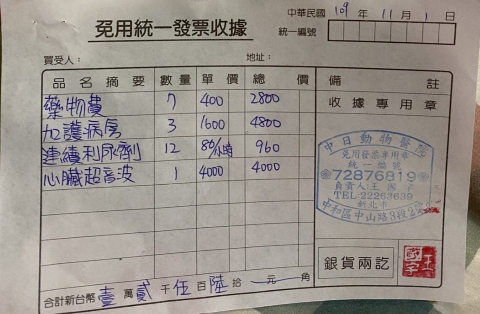 中華民國 109 年 11 月 1 日
免用統一發票收據
統一編號
買受人： 地址：
品名摘要 數量 單價 總價 備註
收據專用章
藥物費 7 400 2800
加護病房 3 1600 4800
連續利尿劑 12 80/小時 960
心臟超音波 1 4000 4000
中日動物醫院
免用發票專用章
統一編號
72876819
負責人:王國宇
TEL:22263639
新北市
中和區中山路3段
銀貨兩訖
王國宇
合計新台幣 壹 萬 貳 千 伍 百 陸 拾 元 角